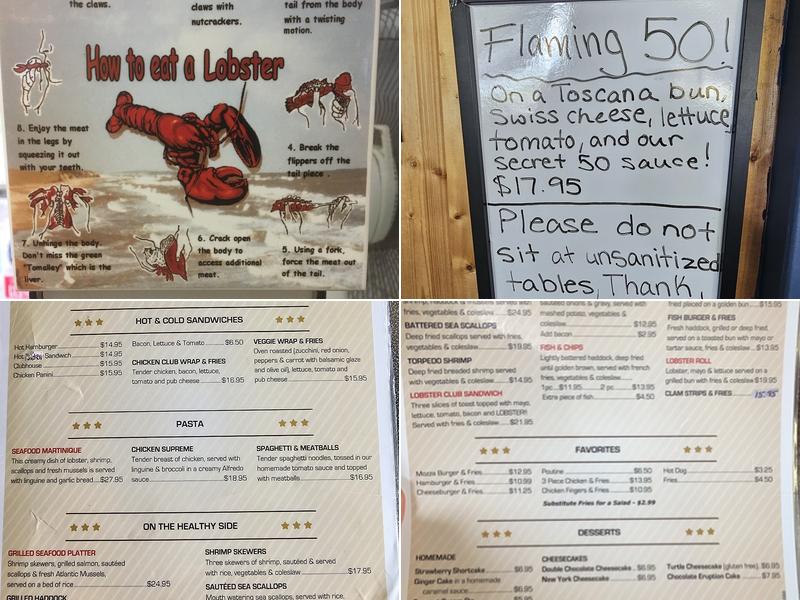 the claws.
claws with
nutcrackers.
tail from the body
with a twisting
motion.
How to eat a Lobster
8. Enjoy the meat
in the legs by
squeezing it out
with your teeth.
4. Break the
flippers off the
tail piece .
7. Unhinge the body.
Don't miss the green
"Tomalley" which is the
liver.
6. Crack open
the body to
access additional
meat.
5. Using a fork,
force the meat out
of the tail.
Flaming 50!
On a Toscana bun,
Swiss cheese, lettuce
tomato, and our
secret 50 sauce!
$17.95
Please do not
sit at unsanitized
tables, Thank
HOT & COLD SANDWICHES
Hot Hamburger $14.95
Hot Sandwich $14.95
Clubhouse $15.95
Chicken Panini $15.95
Bacon, Lettuce & Tomato $6.50
CHICKEN CLUB WRAP & FRIES
Tender chicken, bacon, lettuce,
tomato and pub cheese $16.95
VEGGIE WRAP & FRIES
Oven roasted (zucchini, red onion,
peppers & carrot with balsamic glaze
and olive oil), lettuce, tomato and
pub cheese $15.95
PASTA
SEAFOOD MARTINIQUE
This creamy dish of lobster, shrimp,
scallops and fresh mussels is served
with linguine and garlic bread $27.95
CHICKEN SUPREME
Tender breast of chicken, served with
linguine & broccoli in a creamy Alfredo
sauce $18.95
SPAGHETTI & MEATBALLS
Tender spaghetti noodles, tossed in our
homemade tomato sauce and topped
with meatballs $16.95
ON THE HEALTHY SIDE
GRILLED SEAFOOD PLATTER
Shrimp skewers, grilled salmon, sautéed
scallops & fresh Atlantic Mussels,
served on a bed of rice $24.95
GRILLED HADDOCK
SHRIMP SKEWERS
Three skewers of shrimp, sautéed & served
with rice, vegetables & coleslaw $17.95
SAUTÉED SEA SCALLOPS
Mouth watering sea scallops, served with rice,
fries, vegetables & coleslaw $24.95
BATTERED SEA SCALLOPS
Deep fried scallops served with fries,
vegetables & coleslaw $19.95
TORPEDO SHRIMP
Deep fried breaded shrimp served
with vegetables & coleslaw $14.95
LOBSTER CLUB SANDWICH
Three slices of toast topped with mayo,
lettuce, tomato, bacon and LOBSTER!
Served with fries & coleslaw $21.95
sauteed onions & gravy, served with
mashed potato, vegetables &
coleslaw $12.95
Add bacon $2.95
FISH & CHIPS
Lightly battered haddock, deep fried
until golden brown, served with french
fries, vegetables & coleslaw
1pc $11.95 2 pc $13.95
Extra piece of fish $4.50
fried placed on a golden bun $15.95
FISH BURGER & FRIES
Fresh haddock, grilled or deep fried,
served on a toasted bun with mayo or
tartar sauce, fries & coleslaw $13.95
LOBSTER ROLL
Lobster, mayo & lettuce served on a
grilled bun with fries & coleslaw $19.95
CLAM STRIPS & FRIES 15.95
FAVORITES
Mozza Burger & Fries $12.95
Hamburger & Fries $10.99
Cheeseburger & Fries $11.25
Poutine $6.50
3 Piece Chicken & Fries $13.95
Chicken Fingers & Fries $10.95
Hot Dog $3.25
Fries $4.50
Substitute Fries for a Salad - $2.99
DESSERTS
HOMEMADE
Strawberry Shortcake $6.95
Ginger Cake in a homemade
caramel sauce $6.95
CHEESECAKES
Double Chocolate Cheesecake $6.95
New York Cheesecake $6.95
Turtle Cheesecake (gluten free) $6.95
Chocolate Eruption Cake $7.95